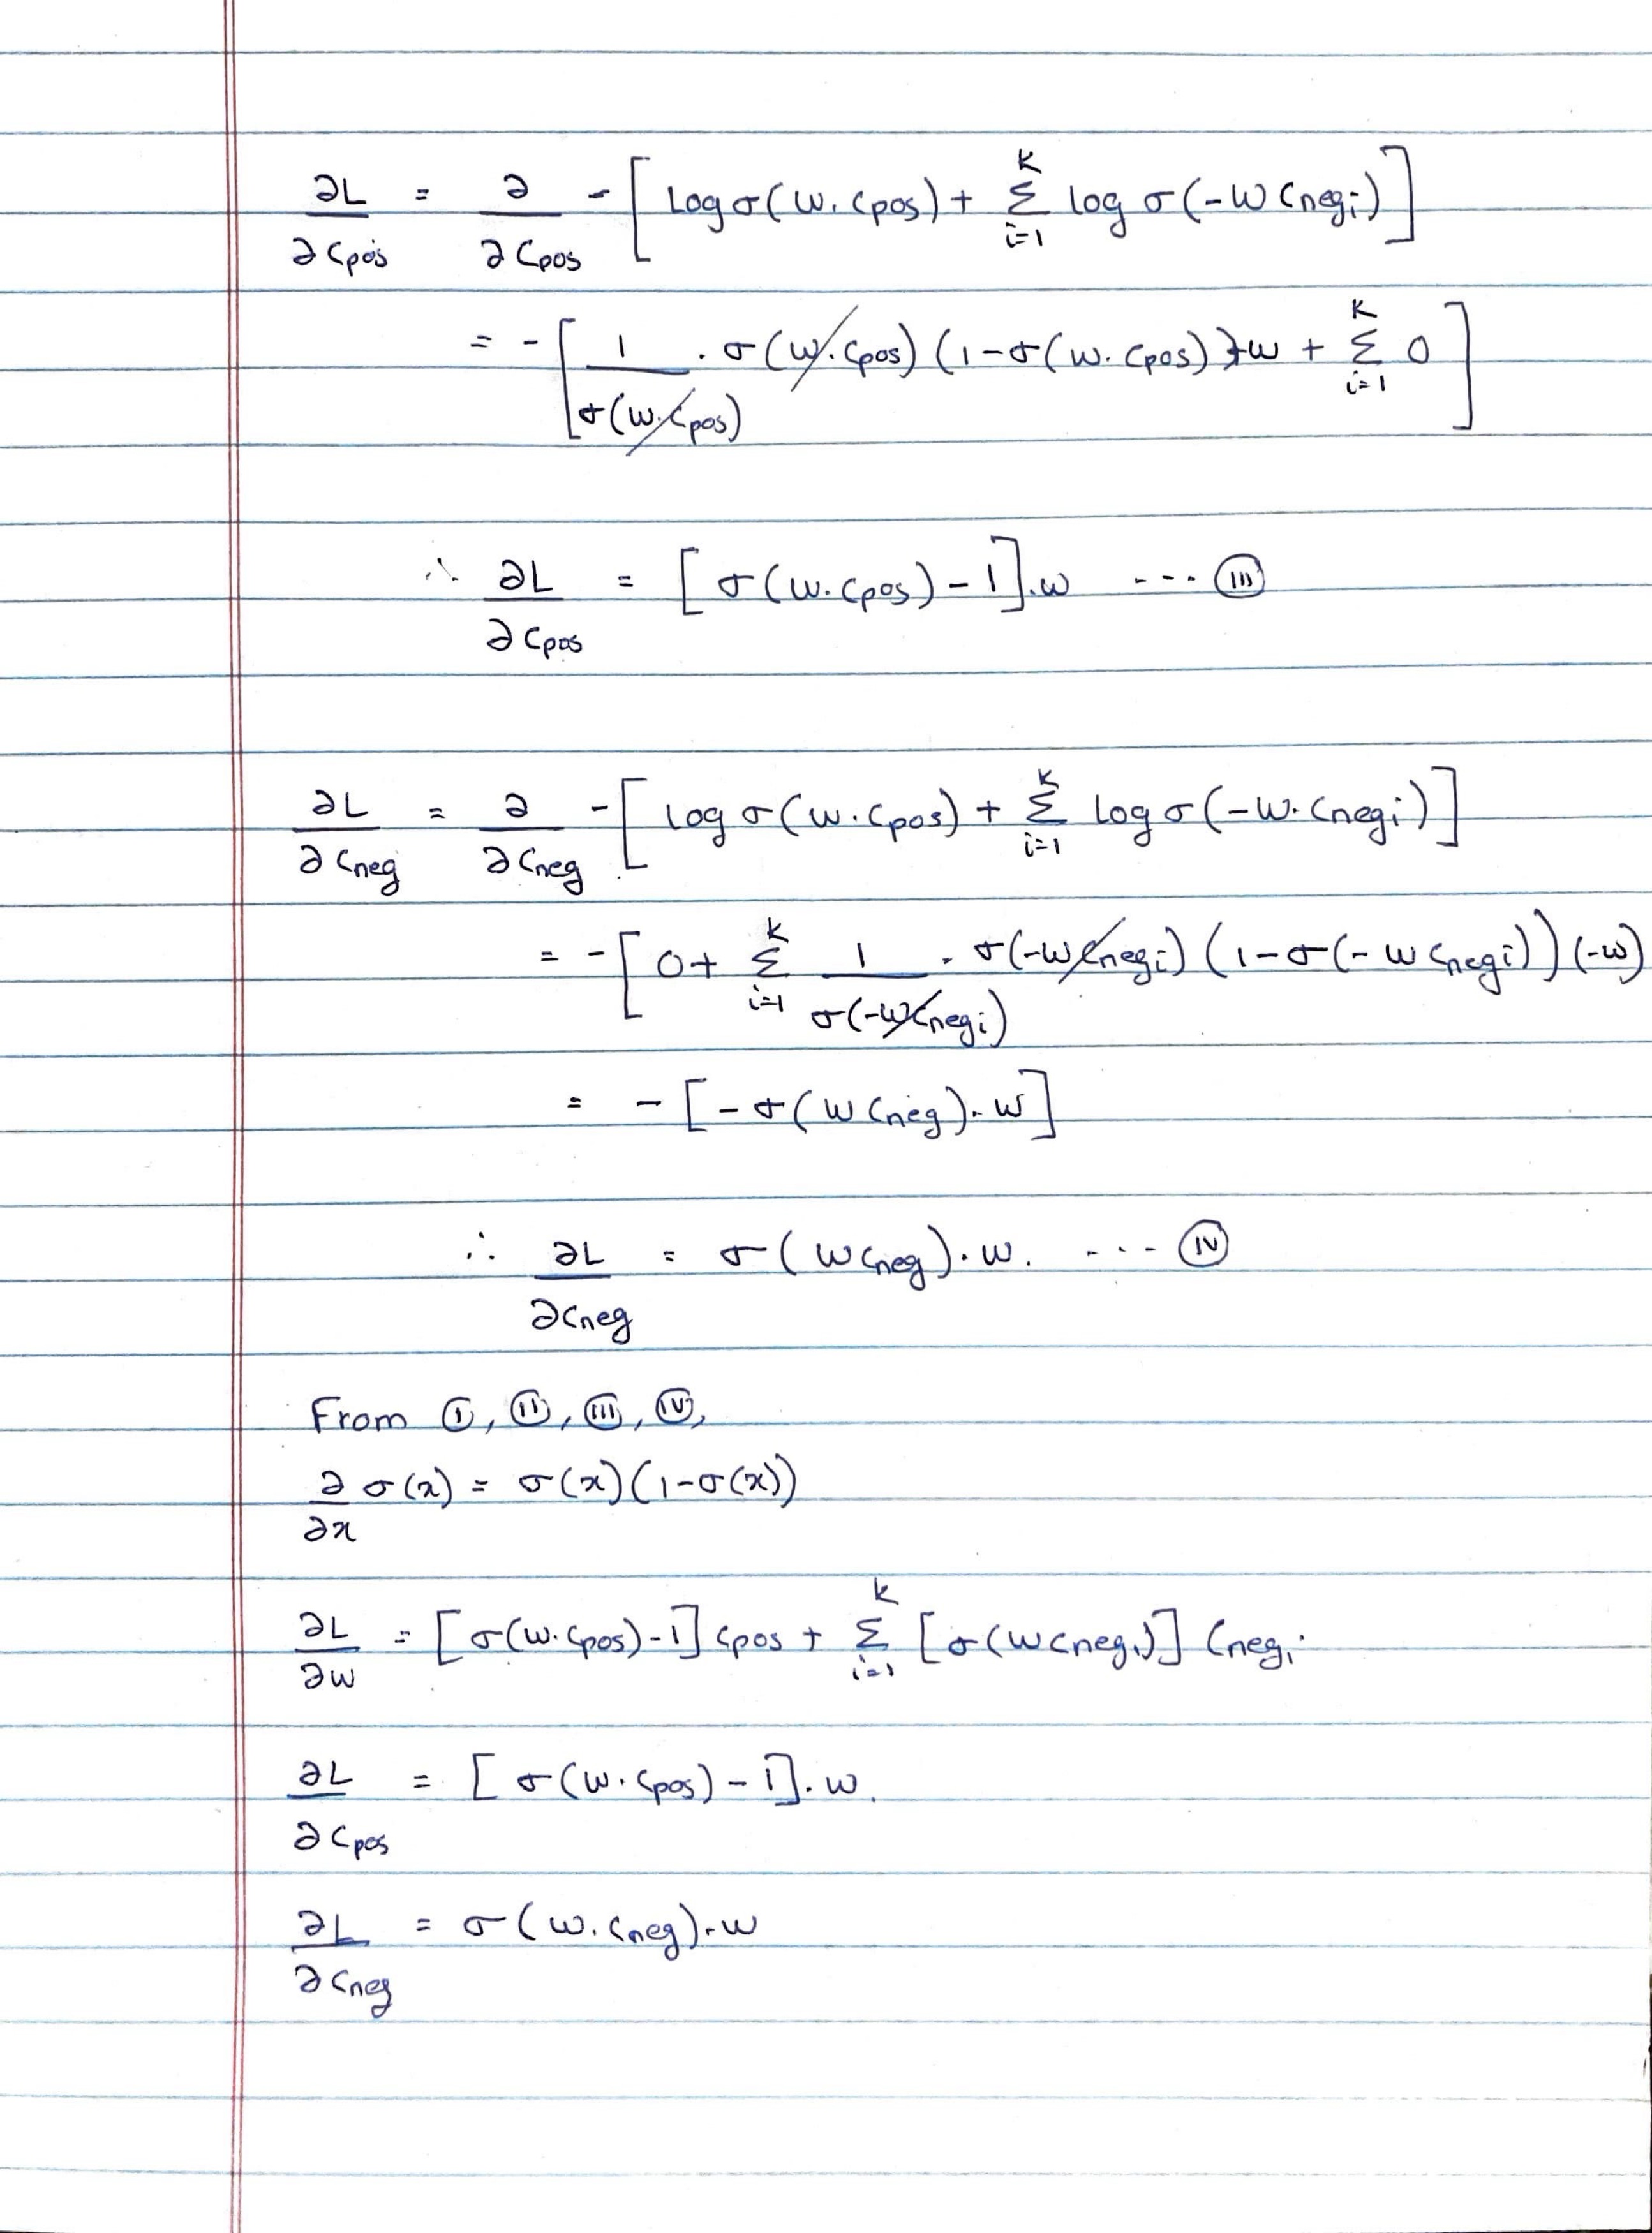 ∂L/∂Cpos = ∂/∂Cpos - [ Log σ(w. Cpos) + Σ_{i=1}^{K} log σ(-W Cneg_i) ]
= - [ 1/σ(w.Cpos) . σ(w.Cpos) (1-σ(w. Cpos)) w + Σ_{i=1}^{K} 0 ]
∴ ∂L/∂Cpos = [ σ(w.Cpos) - 1 ].w --- (III)
∂L/∂Cneg = ∂/∂Cneg - [ Log σ(w.Cpos) + Σ_{i=1}^{K} Log σ(-w. Cneg_i) ]
= - [ 0+ Σ_{i=1}^{K} 1/σ(-wCneg_i) . σ(-w Cneg_i) (1-σ(- w Cneg_i)) (-w)
= - [ -σ(W Cneg). w ]
∴ ∂L/∂Cneg = σ(W Cneg). w. --- (IV)
From (I), (II), (III), (IV),
∂/∂x σ(x) = σ(x)(1-σ(x))
∂L/∂w = [ σ(w.Cpos)-1 ] Cpos + Σ_{i=1}^{k} [ σ(w Cneg_i) ] Cneg_i.
∂L/∂Cpos = [ σ(w.Cpos) - 1 ]. w.
∂L/∂Cneg = σ(w. Cneg). w